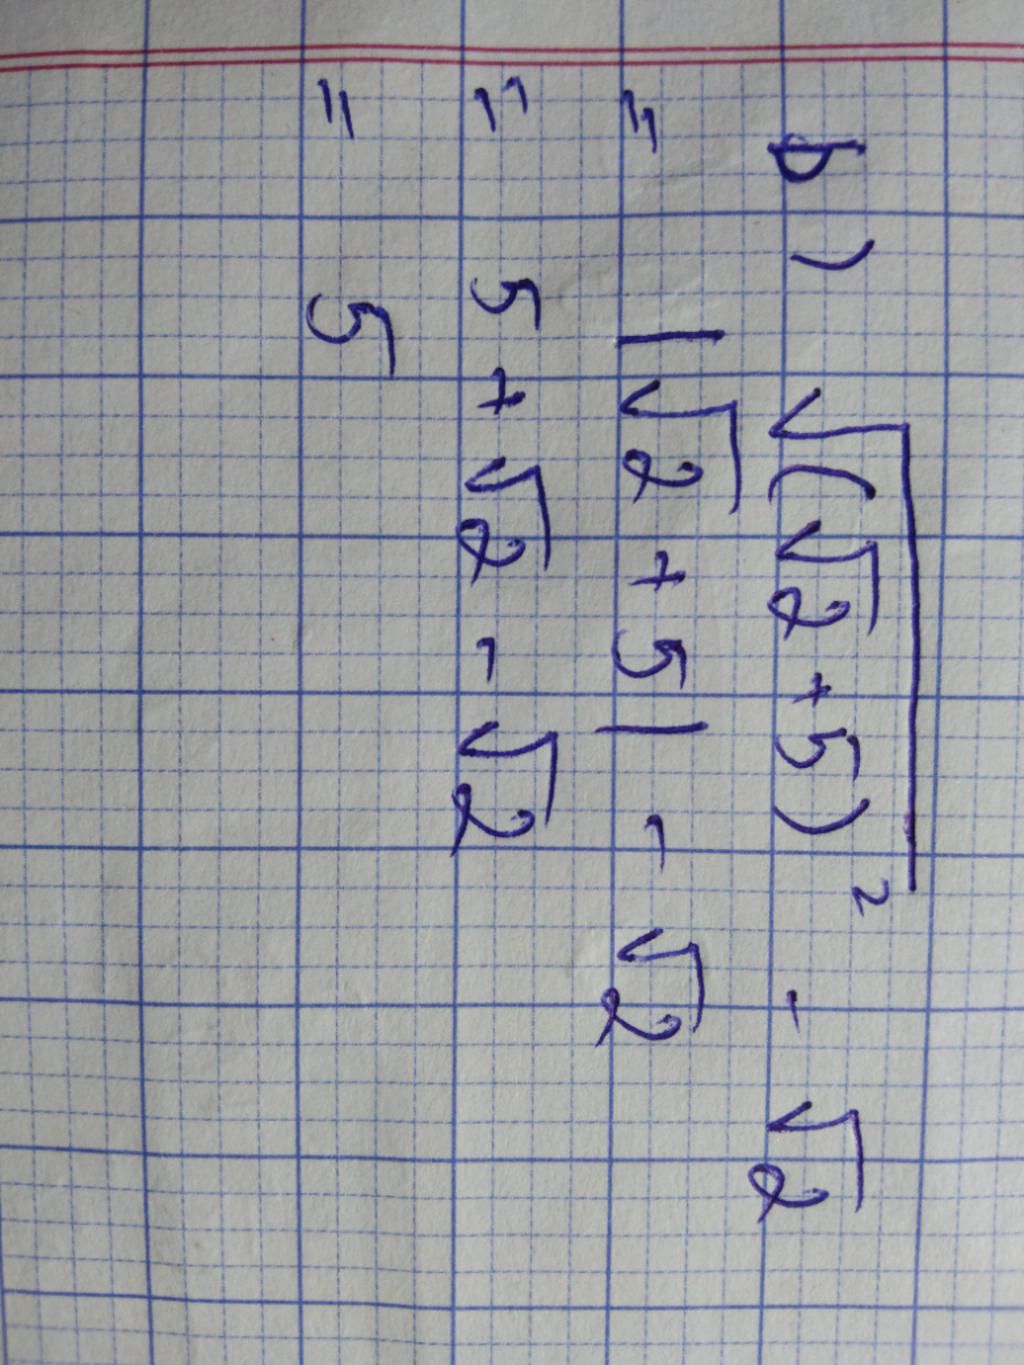 b) √(√2 + 5)² - √2
= |√2 + 5| - √2
= 5 + √2 - √2
= 5